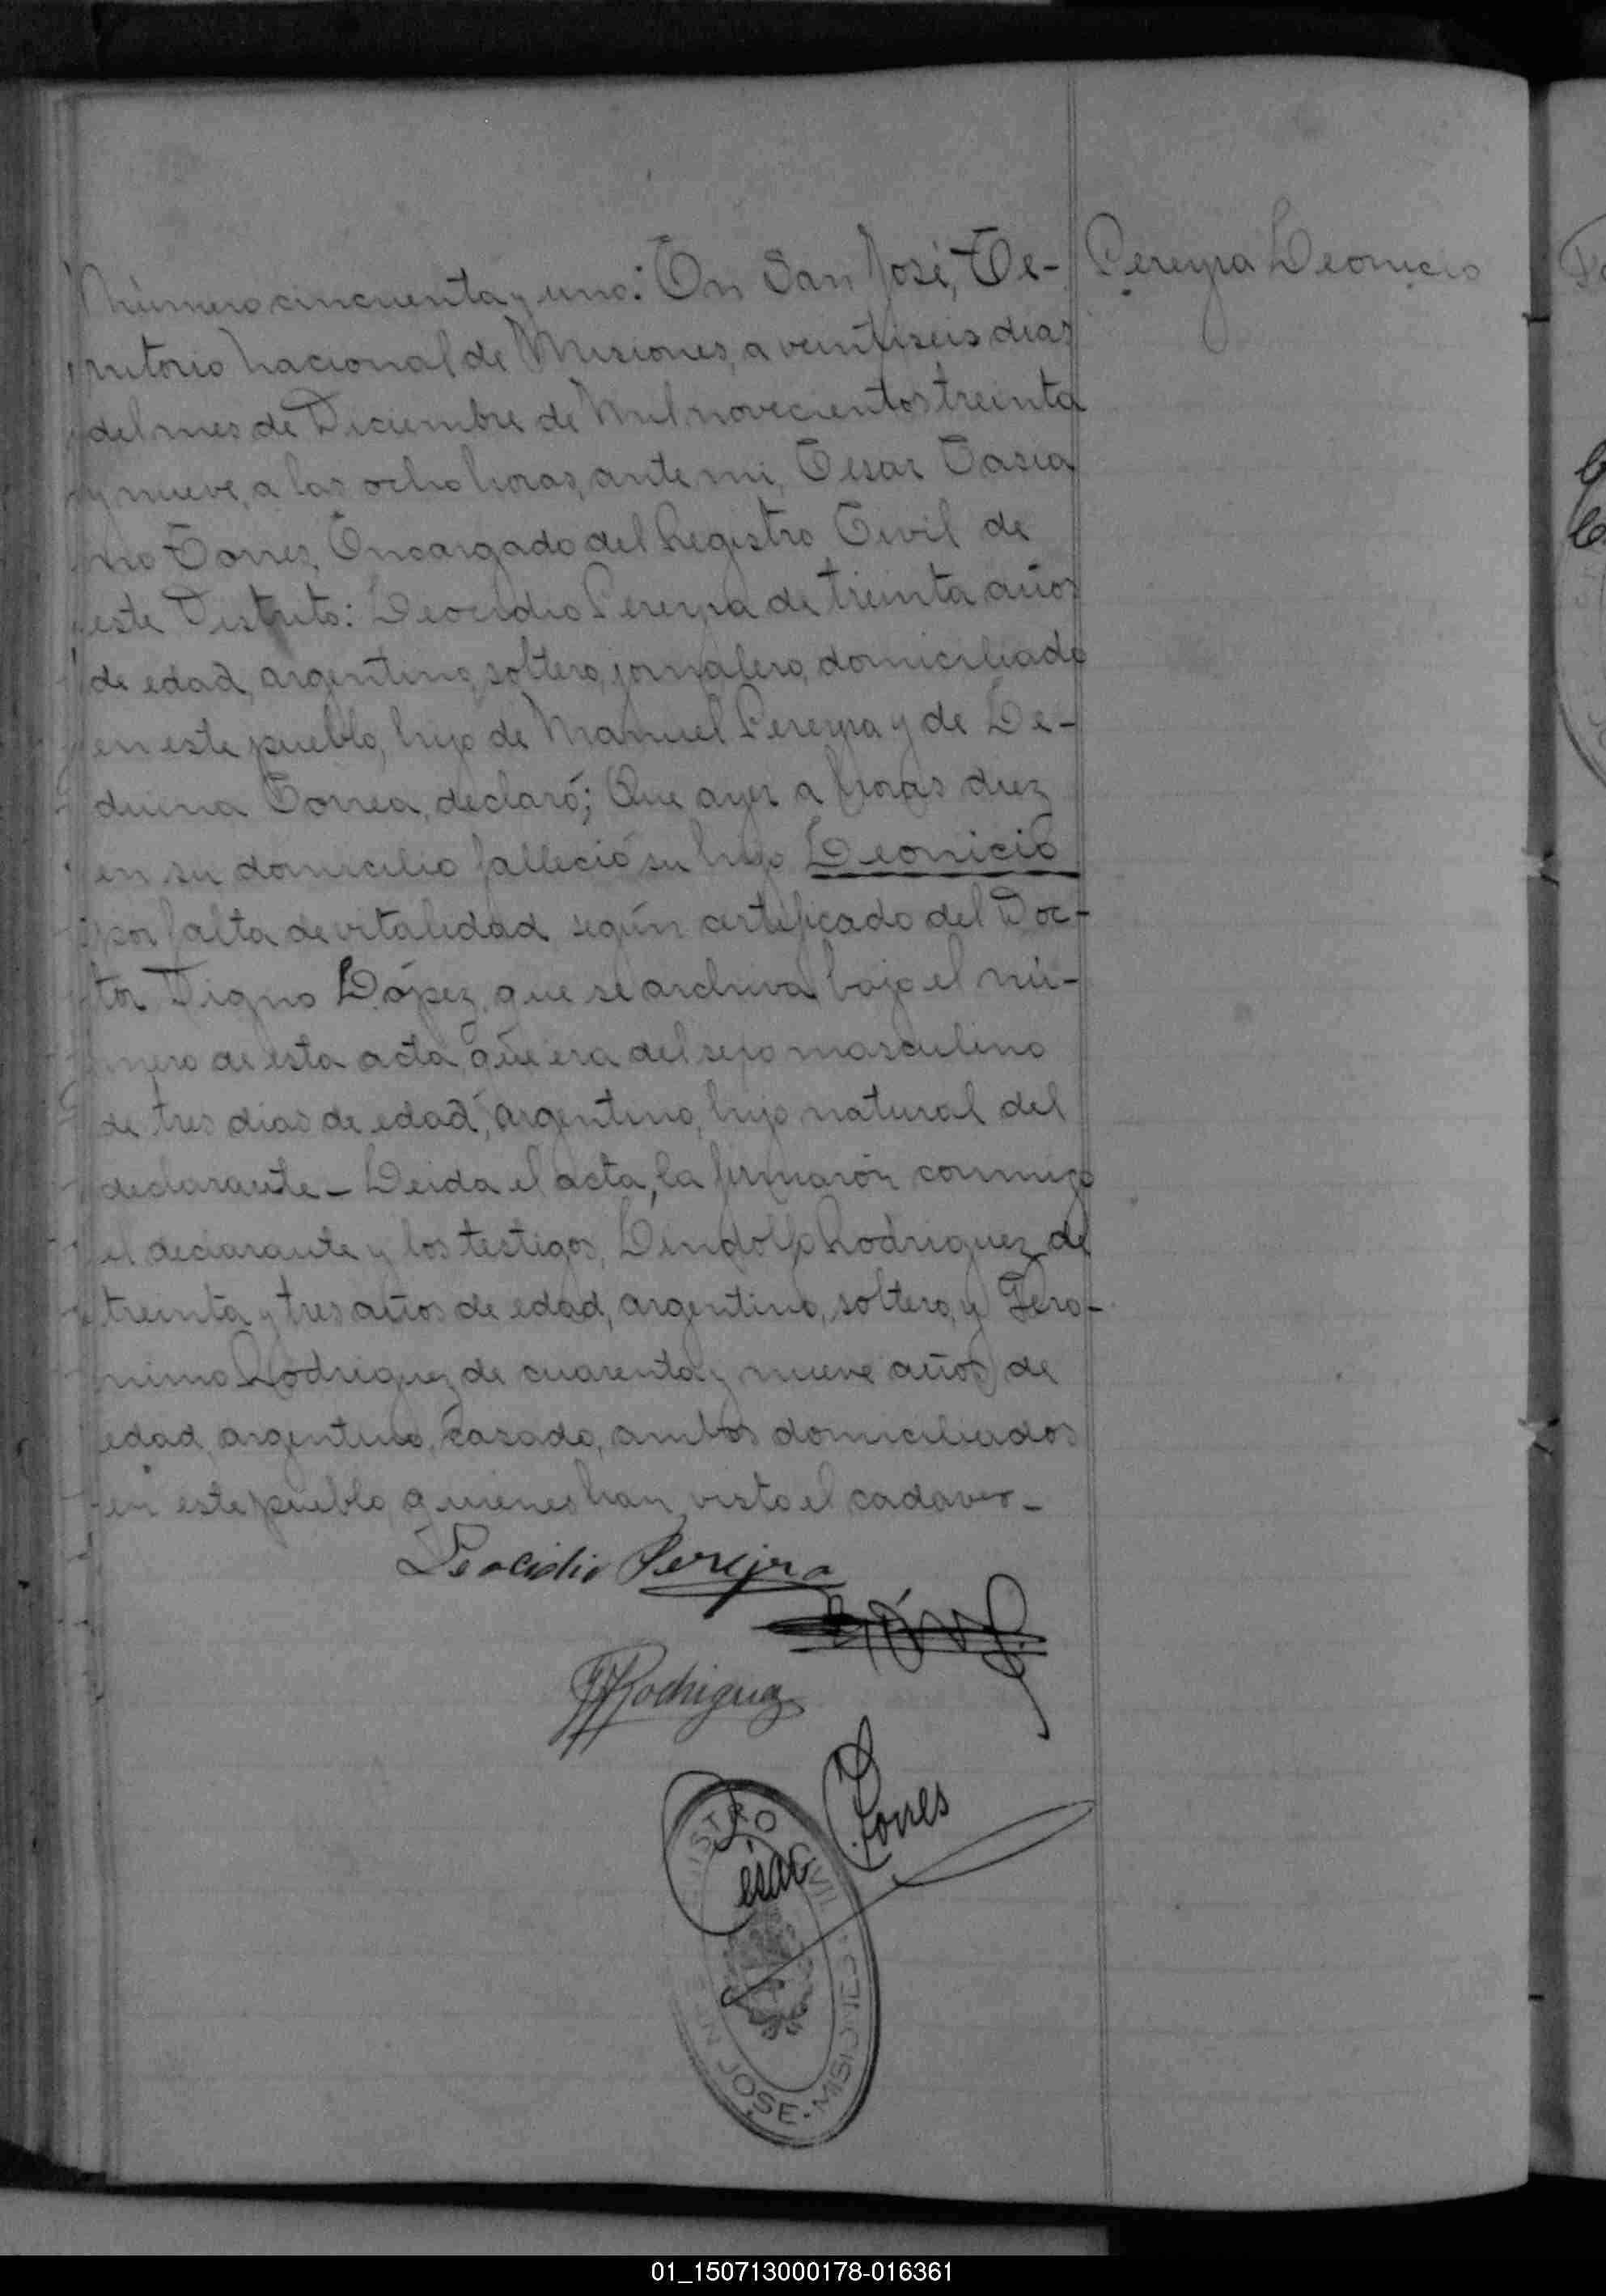 Pereyra Leonicio
Número cincuenta y uno: En San José, Te-
rritorio nacional de Misiones, a veintiseis dias
del mes de Diciembre de Mil novecientos treinta
y nueve, a las ocho horas, ante mi, Cesar Casia
no Torres, Encargado del Registro Civil de
este Distrito: Leocidio Pereyra de treinta años
de edad, argentino, soltero, jornalero, domiciliado
en este pueblo, hijo de Manuel Pereyra y de Le-
duina Correa, declaró; Que ayer a horas diez
en su domicilio falleció su hijo Leonicio
por falta de vitalidad según certificado del Doc-
tor Digno López, que se archiva bajo el nú-
mero de esta acta, que era del sexo masculino
de tres dias de edad, argentino, hijo natural del
declarante - Leida el acta, la firmarón conmigo
el declarante y los testigos, Lindolfo Rodriguez de
treinta y tres años de edad, argentino, soltero, y Gero-
nimo Rodriguez de cuarenta y nueve años de
edad, argentino, casado, ambos domiciliados
en este pueblo, quienes han visto el cadaver -
Leocidio Pereyra
Rodriguez
Cesar C Torres
REGISTRO CIVIL
SAN JOSE - MISIONES
01_150713000178-016361